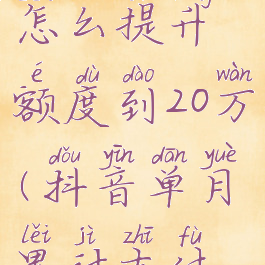 怎么提升
é dù dào wàn
额度到20万
dǒu yīn dān yuè
(抖音单月
lěi jì zhī fù
累计支付